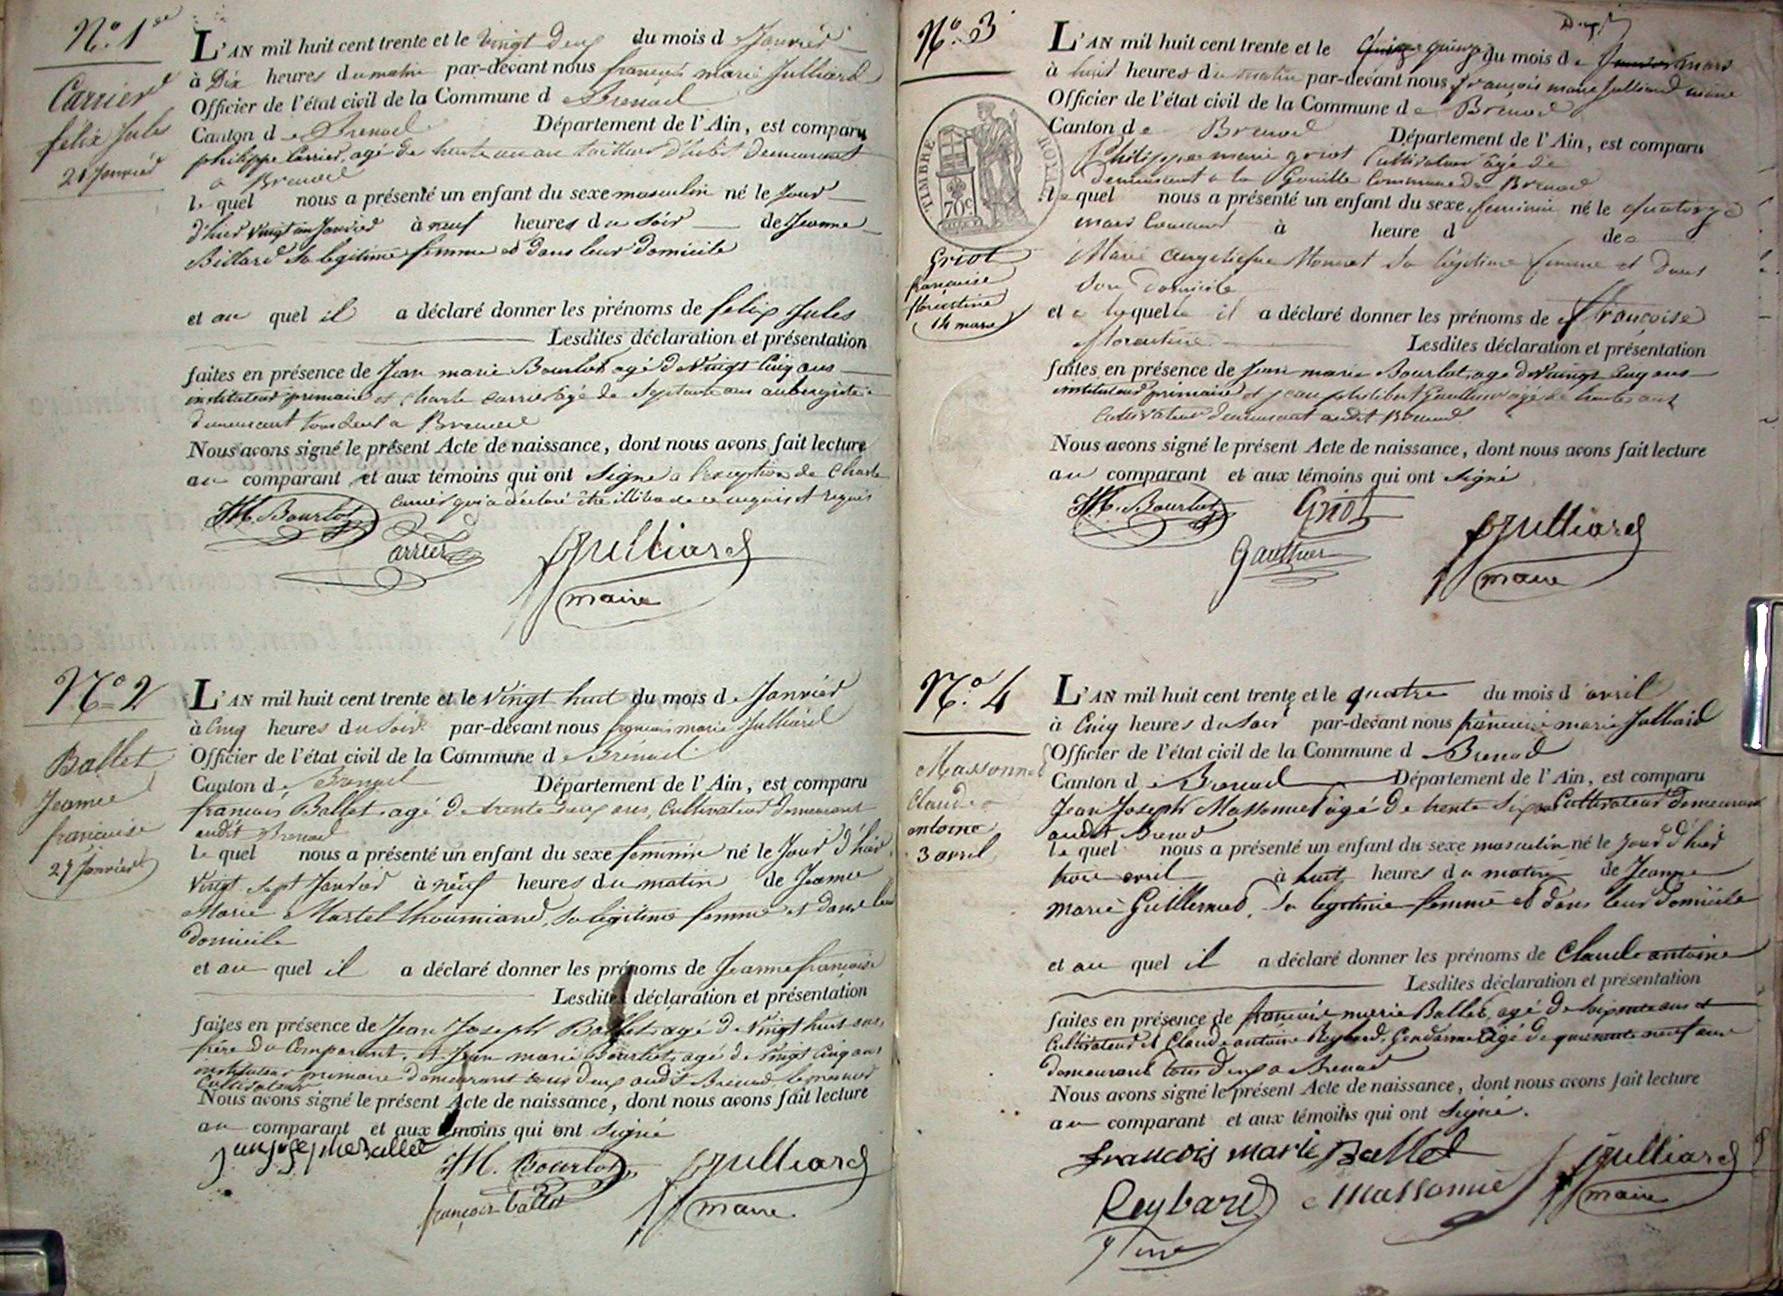 N.o 1er
Carrier
felix Jules
21 Janvier
L'AN mil huit cent trente et le vingt deux du mois d Janvier
à Dix heures du matin par-devant nous françois marie Julliard
Officier de l'état civil de la Commune d e Brenod
Canton d e Brenod Département de l'Ain, est comparu
philippe Carrier, agé de trente un an tailleur d'habit demeurant
a Brenod
le quel nous a présenté un enfant du sexe masculin né le Jour
d'hier vingt un Janvier à neuf heures du Soir de Jeanne
Billard Sa légitime femme et dans leur domicile
et au quel il a déclaré donner les prénoms de felix Jules
Lesdites déclaration et présentation
faites en présence de Jean marie Bourlot agé de Vingt Cinq ans
instituteur primaire et Charle Carrier agé de Septante ans aubergiste
demeurant tous deux a Brenod
Nous avons signé le présent Acte de naissance, dont nous avons fait lecture
au comparant et aux témoins qui ont Signé a l'exception de Charle
Carrier qui a déclaré être illitéré de ce enquis et requis
JM. Bourlot
Carrier
Julliard
maire
N.o 2
Ballet
Jeanne
françoise
27 Janvier
L'AN mil huit cent trente et le vingt huit du mois d e Janvier
à Cinq heures du Soir par-devant nous françois marie Julliard
Officier de l'état civil de la Commune d e Brenod
Canton d e Brenod Département de l'Ain, est comparu
francois Ballet, agé de trente deux ans, Cultivateur demeurant
audit Brenod
le quel nous a présenté un enfant du sexe feminin né le Jour d'hier
vingt Sept Janvier à neuf heures du matin de Jeanne
Marie Martel thoumiand, Sa légitime femme et dans leur
domicile
et au quel il a déclaré donner les prénoms de Jeanne françoise
Lesdites déclaration et présentation
faites en présence de Jean Joseph Ballet agé de Vingt huit ans
frère du Comparant, et Jean marie Bourlot, agé de Vingt Cinq ans
instituteur primaire demeurant tous deux audit Brenod le premier
Cultivateur
Nous avons signé le présent Acte de naissance, dont nous avons fait lecture
au comparant et aux témoins qui ont Signé
jan josephe ballet
JM. Bourlot
françois ballet
Julliard
maire
N.o 3
TIMBRE ROYAL
70c
Griot
françoise
florentine
14 mars
L'AN mil huit cent trente et le quinze du mois d e mars
à huit heures du matin par-devant nous françois marie Julliard maire
Officier de l'état civil de la Commune d e Brenod
Canton d e Brenod Département de l'Ain, est comparu
Philippe marie griot Cultivateur agé de
demeurant a la Gouille Commune de Brenod
le quel nous a présenté un enfant du sexe feminin né le quatorze
mars Courant à heure d de
Marie angelique Monnet Sa légitime femme et dans
Son domicile
et a la quelle il a déclaré donner les prénoms de françoise
florentine
Lesdites déclaration et présentation
faites en présence de Jean marie Bourlot, agé de Vaingt Cinq ans
instituteur primaire et jean philibert Gauthier agé de trente ans
Cultivateur demeurant audit Brenod
Nous avons signé le présent Acte de naissance, dont nous avons fait lecture
au comparant et aux témoins qui ont Signé
JM. Bourlot
Griot
Gauthier
Julliard
maire
N.o 4
Massonnet
Claude
antoine
3 avril
L'AN mil huit cent trente et le quatre du mois d'avril
à Cinq heures du Soir par-devant nous françois marie Julliard
Officier de l'état civil de la Commune d e Brenod
Canton d e Brenod Département de l'Ain, est comparu
Jean Joseph Massonnet agé de trente Six ans Cultivateur demeurant
audit Brenod
le quel nous a présenté un enfant du sexe masculin né le Jour d'hier
trois avril à huit heures du matin de Jeanne
marie Guillermet, Sa légitime femme et dans leur domicile
et au quel il a déclaré donner les prénoms de Claude antoine
Lesdites déclaration et présentation
faites en présence de françois marie Ballet, agé de Soixante ans et
Cultivateur et Claude antoine Reybard, Gendarme agé de quarante neuf ans
demeurant tous deux a Brenod
Nous avons signé le présent Acte de naissance, dont nous avons fait lecture
au comparant et aux témoins qui ont Signé.
francois marie Ballet
Reybard
Massonnet
Julliard
maire